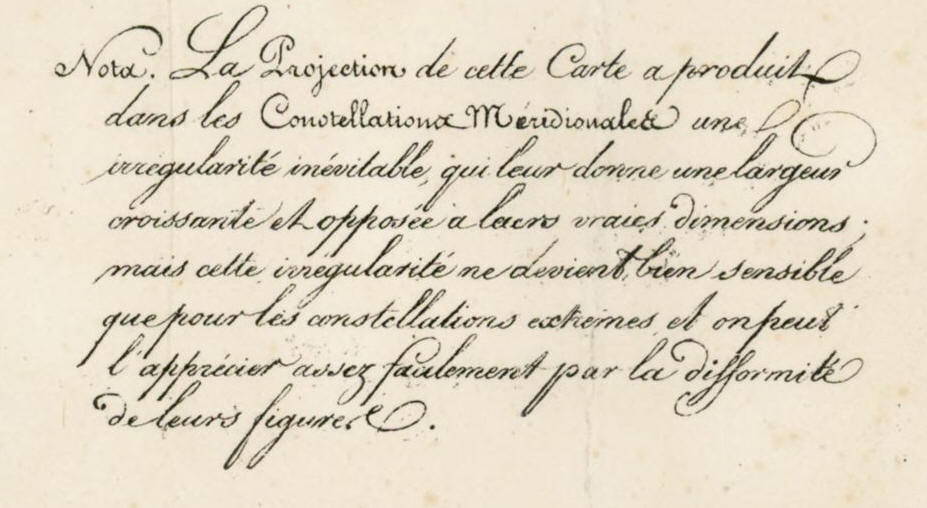 Nota. La Projection de cette Carte a produit
dans les Constellations Méridionales une
irrégularité inévitable, qui leur donne une largeur
croissante et opposée a leurs vraies dimensions;
mais cette irregularité ne devient bien sensible
que pour les constellations extremes, et on peut
l'apprécier assez facilement par la difformité
de leurs figures.